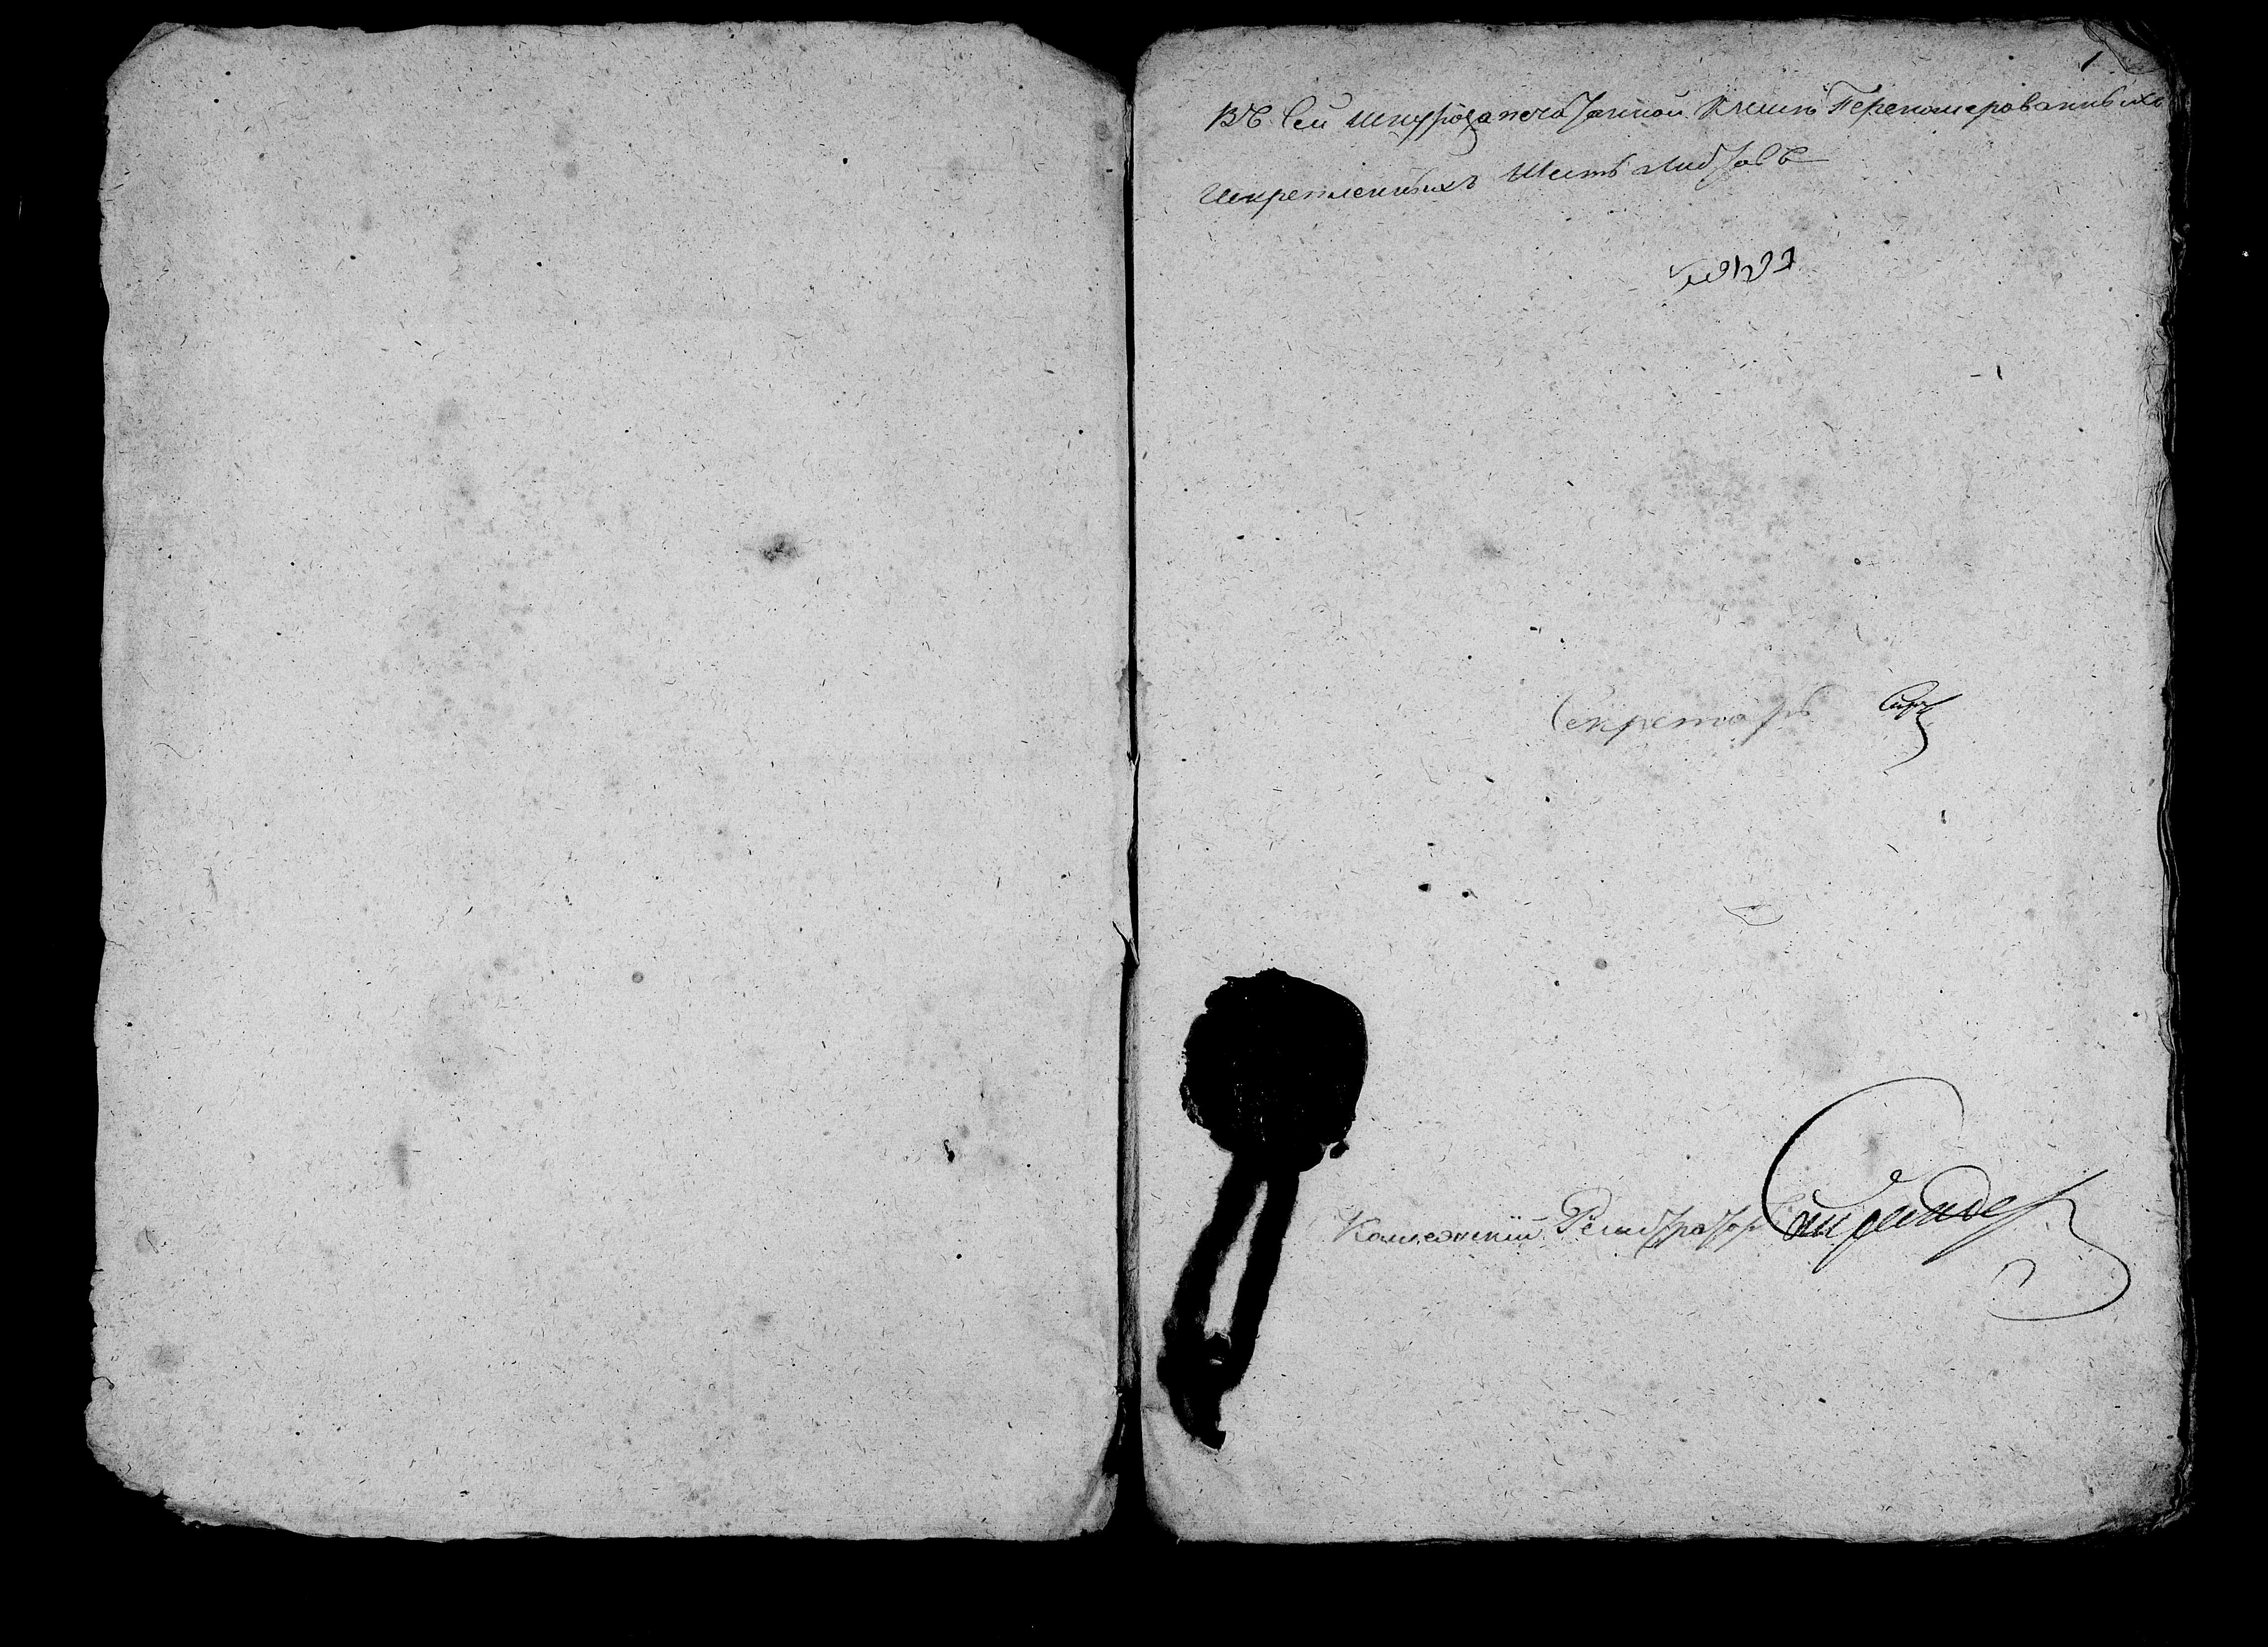 1
Въ сей шнурозапечатанной Книге Переномерованныхъ
искрепленныхъ Шесть листовъ
Секретарь
Коллежскій Регистраторъ